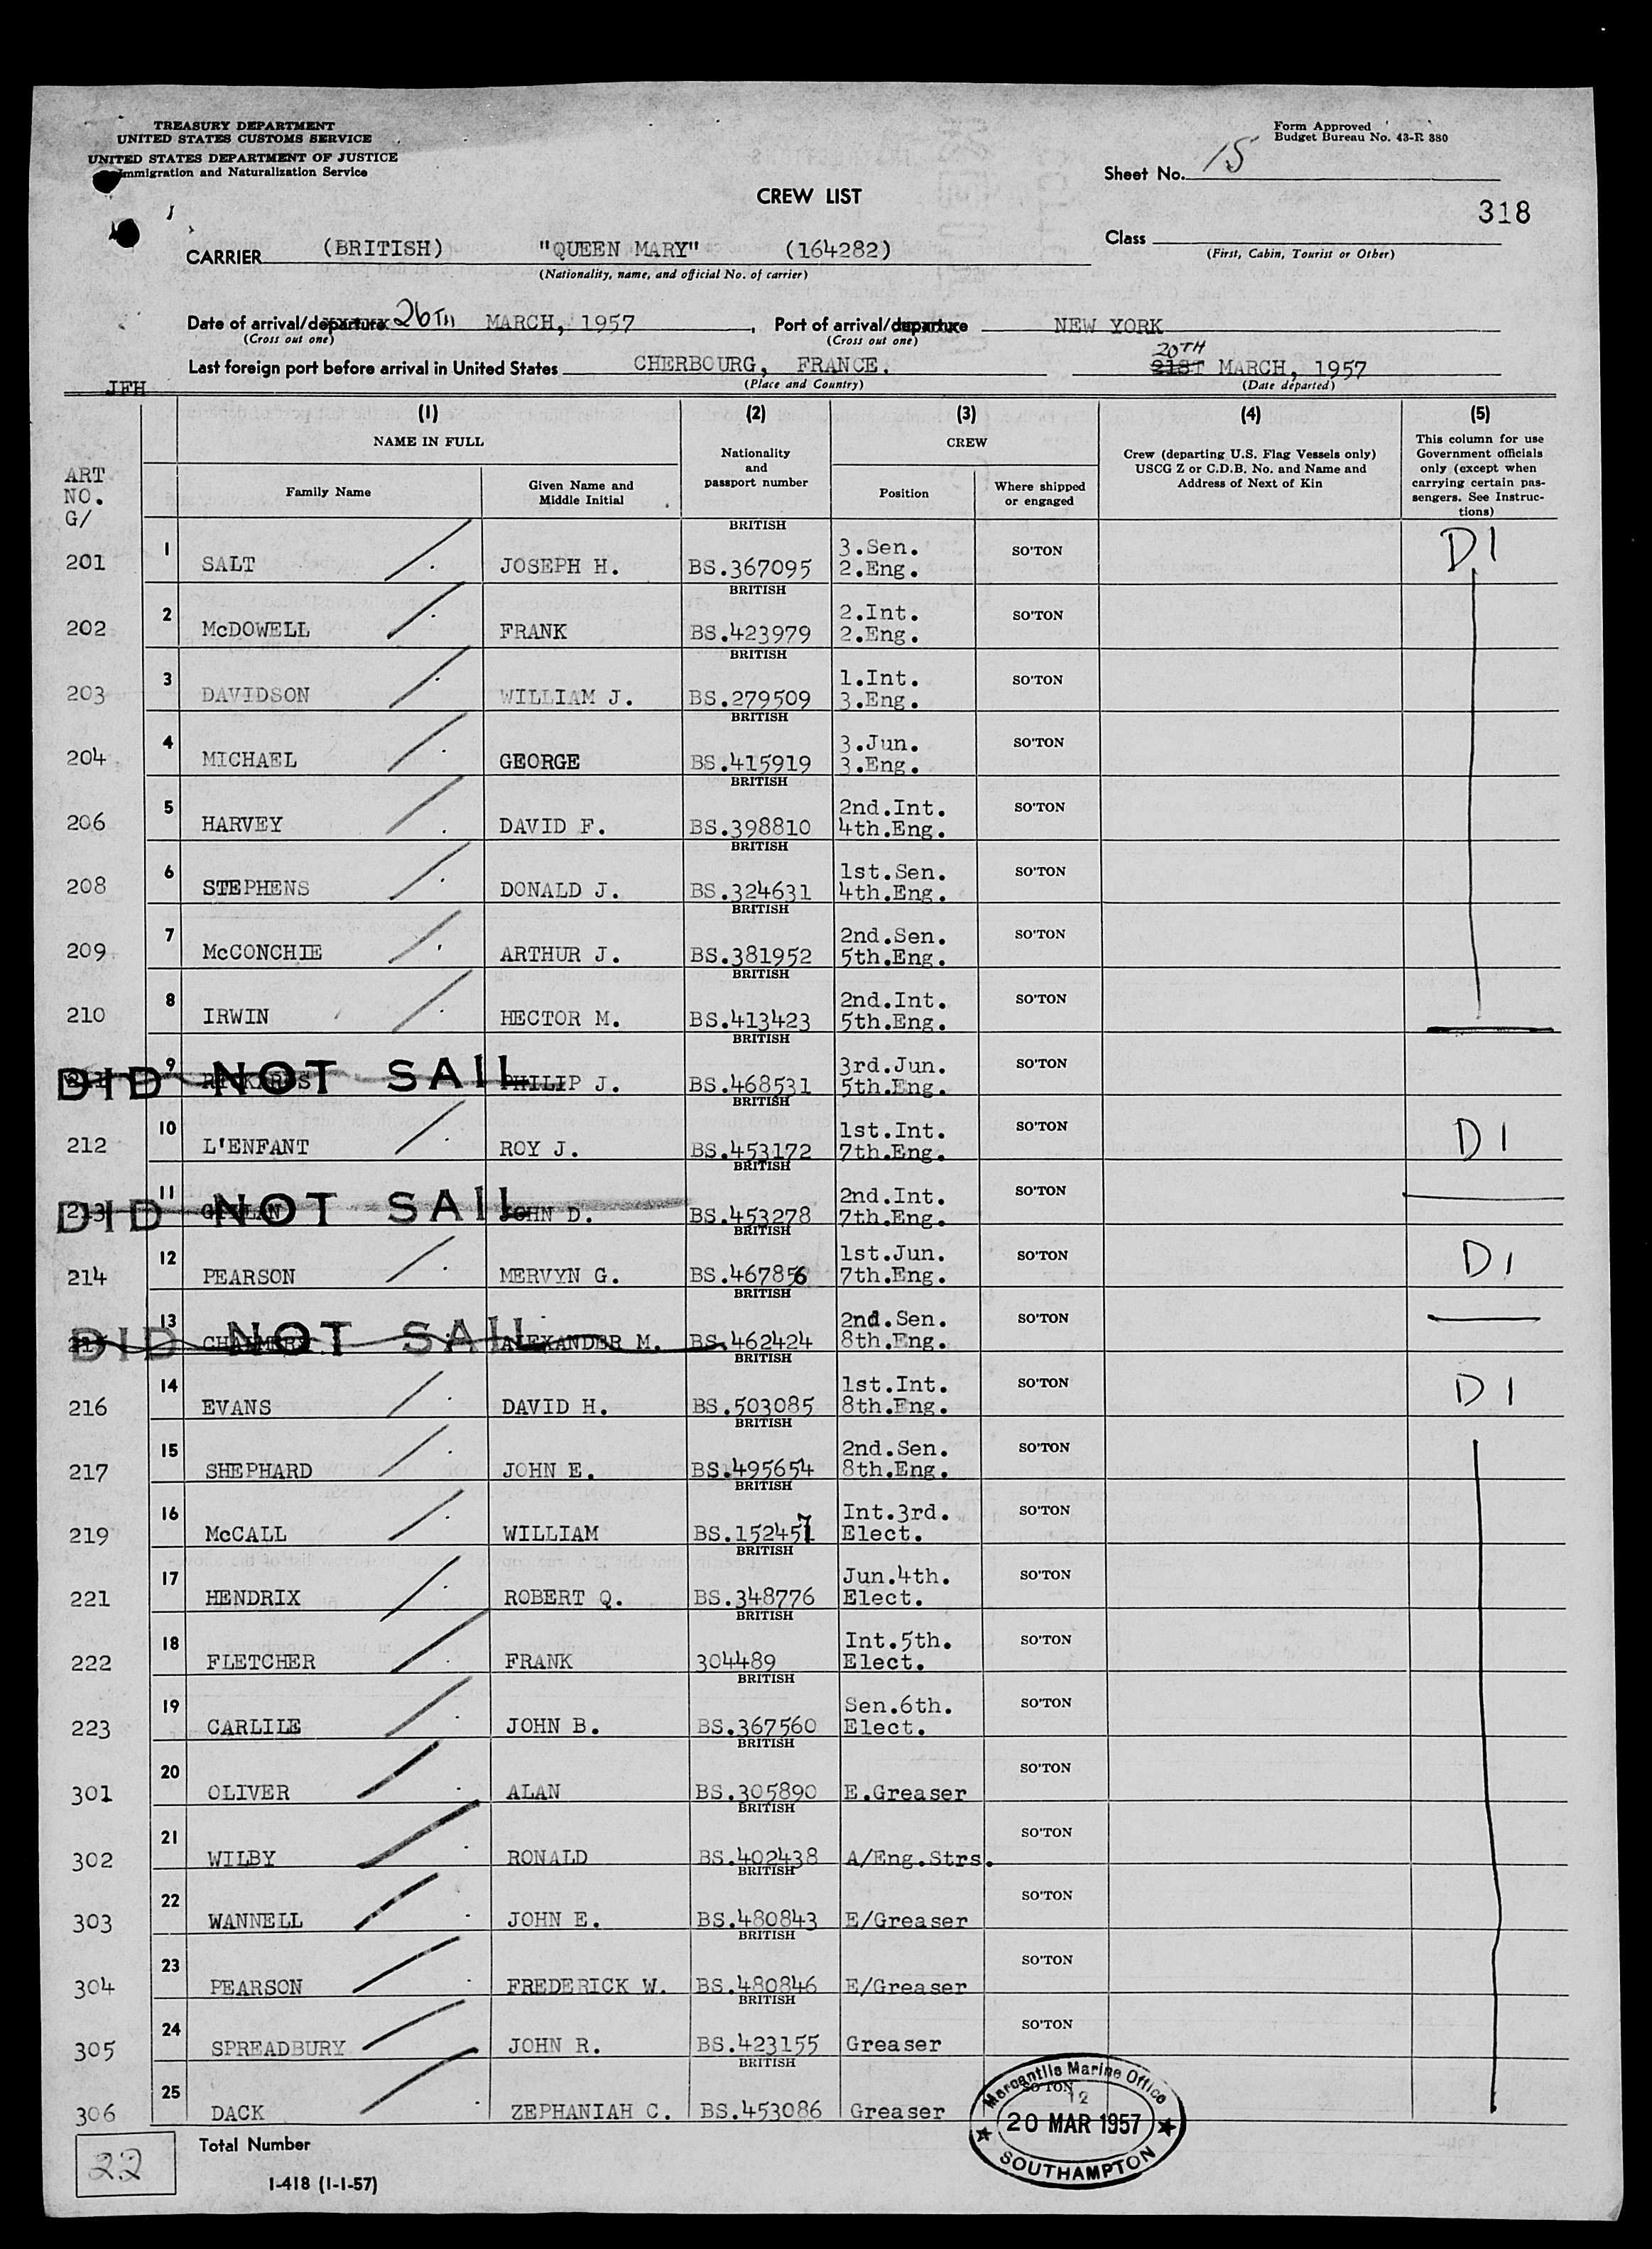 TREASURY DEPARTMENT
UNITED STATES CUSTOMS SERVICE
UNITED STATES DEPARTMENT OF JUSTICE
Immigration and Naturalization Service
Form Approved
Budget Bureau No. 43-R 380
Sheet No. 15
CREW LIST
318
Class
(First, Cabin, Tourist or Other)
CARRIER (BRITISH) "QUEEN MARY" (164282)
(Nationality, name, and official No. of carrier)
Date of arrival/departure 26TH MARCH, 1957, Port of arrival/departure NEW YORK
(Cross out one) (Cross out one)
Last foreign port before arrival in United States CHERBOURG, FRANCE. 20TH 21ST MARCH, 1957
(Place and Country) (Date departed)
JFH
(1) (2) (3) (4) (5)
NAME IN FULL
Nationality and passport number
CREW
Crew (departing U.S. Flag Vessels only) USCG Z or C.D.B. No. and Name and Address of Next of Kin
This column for use Government officials only (except when carrying certain passengers. See Instructions)
ART NO. G/
Family Name Given Name and Middle Initial Position Where shipped or engaged
201 1 SALT JOSEPH H. BRITISH BS.367095 3.Sen. 2.Eng. SO'TON D1
202 2 McDOWELL FRANK BRITISH BS.423979 2.Int. 2.Eng. SO'TON
203 3 DAVIDSON WILLIAM J. BRITISH BS.279509 1.Int. 3.Eng. SO'TON
204 4 MICHAEL GEORGE BRITISH BS.415919 3.Jun. 3.Eng. SO'TON
206 5 HARVEY DAVID F. BRITISH BS.398810 2nd.Int. 4th.Eng. SO'TON
208 6 STEPHENS DONALD J. BRITISH BS.324631 1st.Sen. 4th.Eng. SO'TON
209 7 McCONCHIE ARTHUR J. BRITISH BS.381952 2nd.Sen. 5th.Eng. SO'TON
210 8 IRWIN HECTOR M. BRITISH BS.413423 2nd.Int. 5th.Eng. SO'TON
DID NOT SAIL 9 PHILIP J. BRITISH BS.468531 3rd.Jun. 5th.Eng. SO'TON
212 10 L'ENFANT ROY J. BRITISH BS.453172 1st.Int. 7th.Eng. SO'TON D1
213 DID NOT SAIL 11 JOHN D. BRITISH BS.453278 2nd.Int. 7th.Eng. SO'TON
214 12 PEARSON MERVYN G. BRITISH BS.467856 1st.Jun. 7th.Eng. SO'TON D1
DID NOT SAIL 13 ALEXANDER M. BRITISH BS.462424 2nd.Sen. 8th.Eng. SO'TON
216 14 EVANS DAVID H. BRITISH BS.503085 1st.Int. 8th.Eng. SO'TON D1
217 15 SHEPHARD JOHN E. BRITISH BS.495654 2nd.Sen. 8th.Eng. SO'TON
219 16 McCALL WILLIAM BRITISH BS.152457 Int.3rd. Elect. SO'TON
221 17 HENDRIX ROBERT Q. BRITISH BS.348776 Jun.4th. Elect. SO'TON
222 18 FLETCHER FRANK BRITISH 304489 Int.5th. Elect. SO'TON
223 19 CARLILE JOHN B. BRITISH BS.367560 Sen.6th. Elect. SO'TON
301 20 OLIVER ALAN BRITISH BS.305890 E.Greaser SO'TON
302 21 WILBY RONALD BRITISH BS.402438 A/Eng.Strs. SO'TON
303 22 WANNELL JOHN E. BRITISH BS.480843 E/Greaser SO'TON
304 23 PEARSON FREDERICK W. BRITISH BS.480846 E/Greaser SO'TON
305 24 SPREADBURY JOHN R. BRITISH BS.423155 Greaser SO'TON
306 25 DACK ZEPHANIAH C. BRITISH BS.453086 Greaser SO'TON
Mercantile Marine Office
12
20 MAR 1957
SOUTHAMPTON
22 Total Number
I-418 (1-1-57)